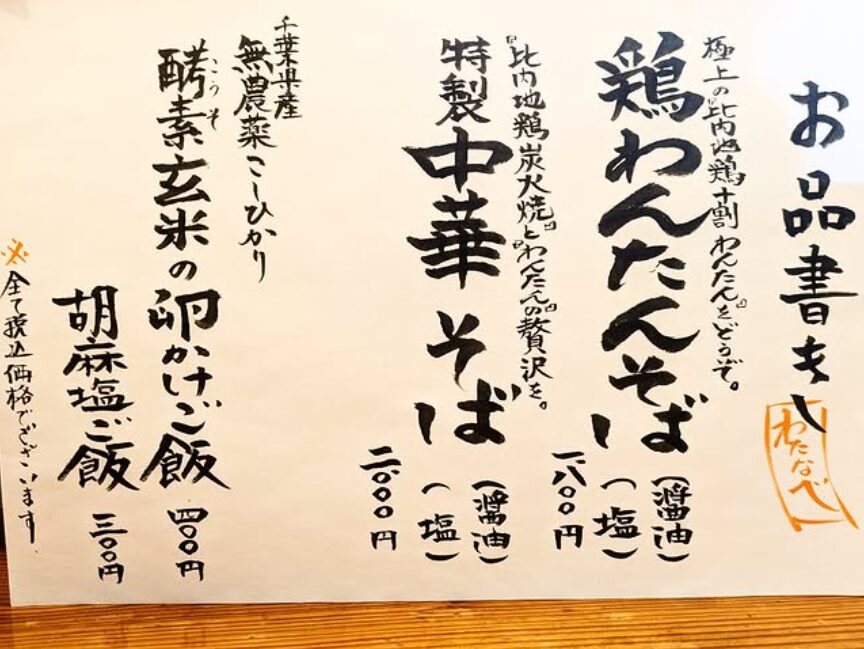 お品書き
わたなべ
極上の比内地鶏十割『わんたん』をどうぞ。
鶏わんたんそば
(醤油)
(塩)
一、八〇〇円
『比内地鶏炭火焼』と『わんたん』の贅沢を。
特製中華そば
(醤油)
(塩)
二、〇〇〇円
千葉県産
無農薬こしひかり
酵素玄米の卵かけご飯
こうそ
四〇〇円
胡麻塩ご飯
三〇〇円
※全て税込価格でございます。